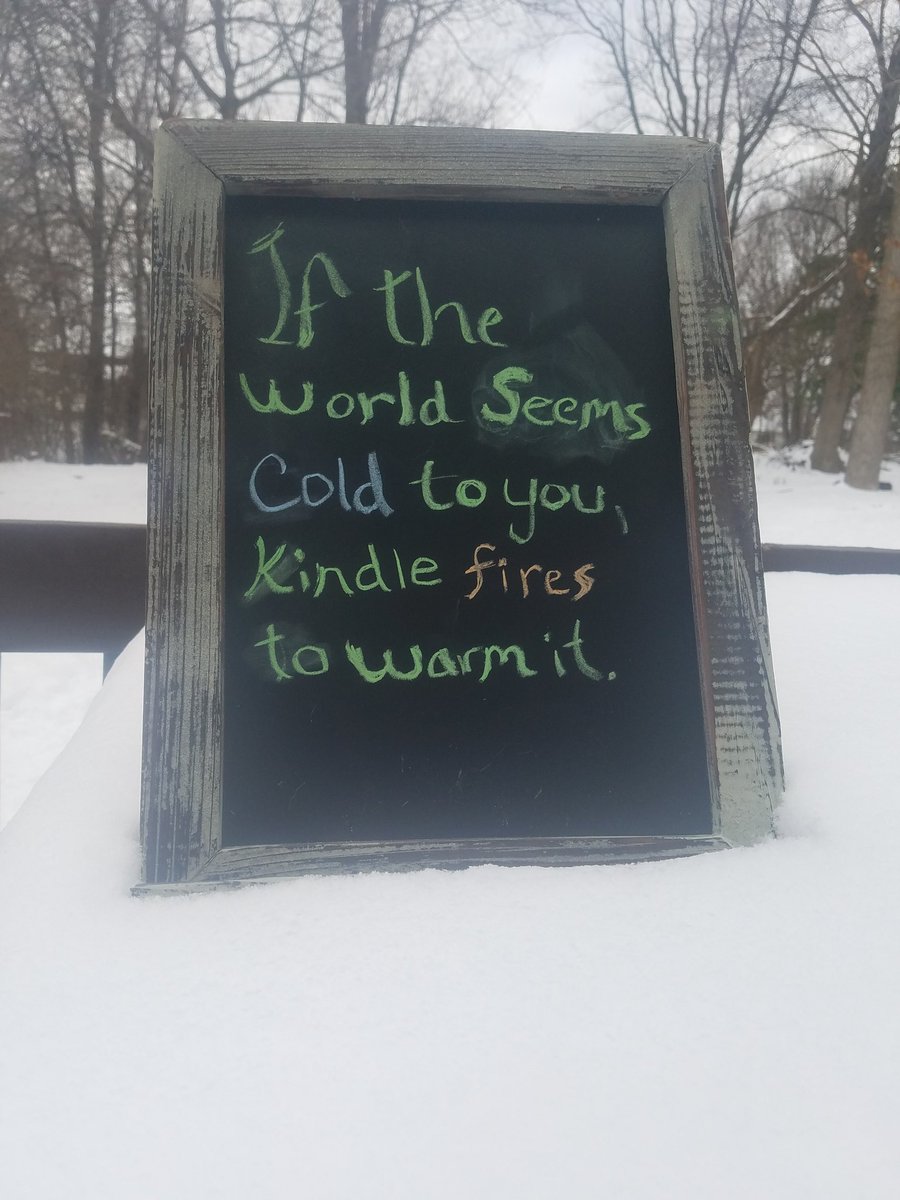 If the
world Seems
Cold to you,
Kindle fires
to warm it.